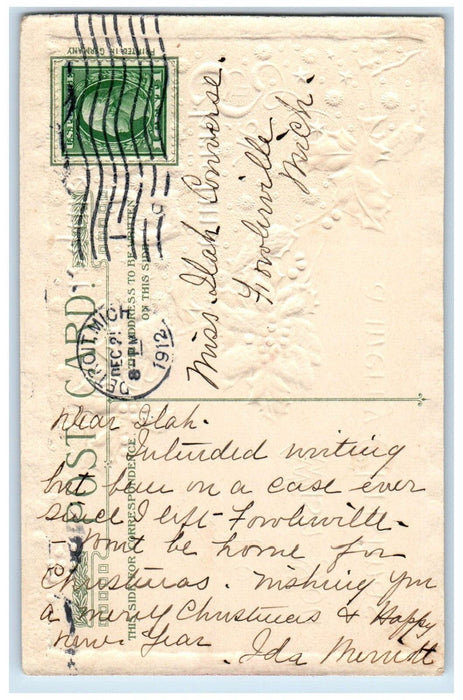 PRINTED IN GERMANY
U.S. POSTAGE
POST CARD
THE ADDRESS TO BE WRITTEN
ON THIS SIDE
THIS SIDE FOR CORRESPONDENCE.
DETROIT, MICH
DEC 21
8 M
1912
Miss Ilah Converse.
Fowlerville
Mich.
Dear Ilah.
Intended writing
but been on a case ever
since I left Fowlerville.
- Wont be home for
Christmas. Wishing you
a merry Christmas & Happy
New Year
Ida Merritt